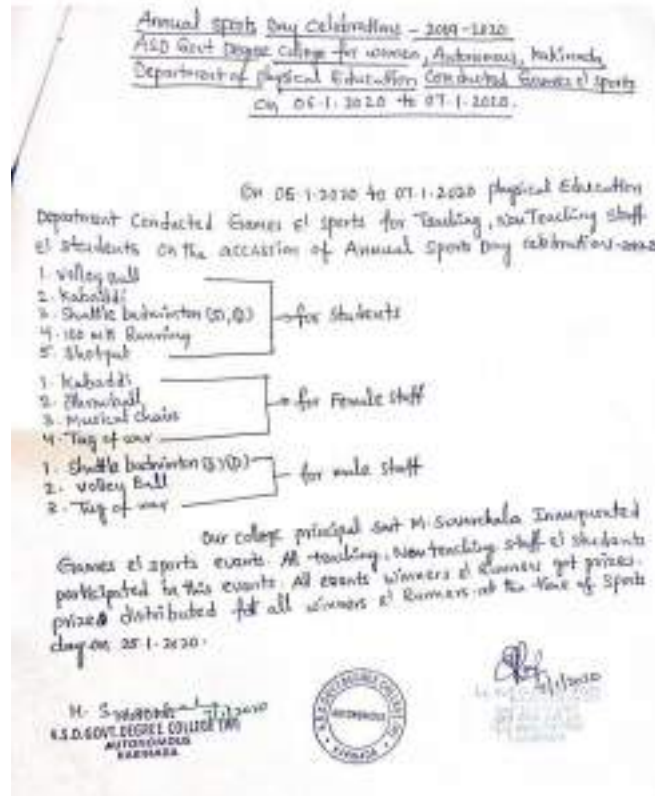 Annual Sports Day Celebrations - 2019-2020
ASD Govt Degree College for women, Autonomous, Kakinada
Department of physical Education Conducted Games & Sports
On 06-1-2020 to 07-1-2020.
On 06-1-2020 to 07-1-2020 physical Education
Department Conducted Games & sports for Teaching, Non Teaching staff
& students on the accassion of Annual Sports Day celebrations-2020
1. volley ball
2. Kabaddi
3. Shuttle badminton (S,D)
4. 100 mtr Running
5. Shotput
for Students
1. Kabaddi
2. Throwball
3. Musical chairs
4. Tug of war
for Female staff
1. Shuttle badminton (S)(D)
2. Volley Ball
3. Tug of war
for male staff
Our college principal Smt M. Suvarchala Inaugurated
Games & sports events. All teaching, Non teaching staff & students
participated in this events. All events winners & Runners got prizes.
prizes distributed for all winners & Runners at the time of Sports
day on 25-1-2020.
7/1/2020
A.S.D. GOVT. DEGREE COLLEGE (W)
AUTONOMOUS
KAKINADA
A.S.D. GOVT. DEGREE COLLEGE (W)
AUTONOMOUS
KAKINADA
7/1/2020